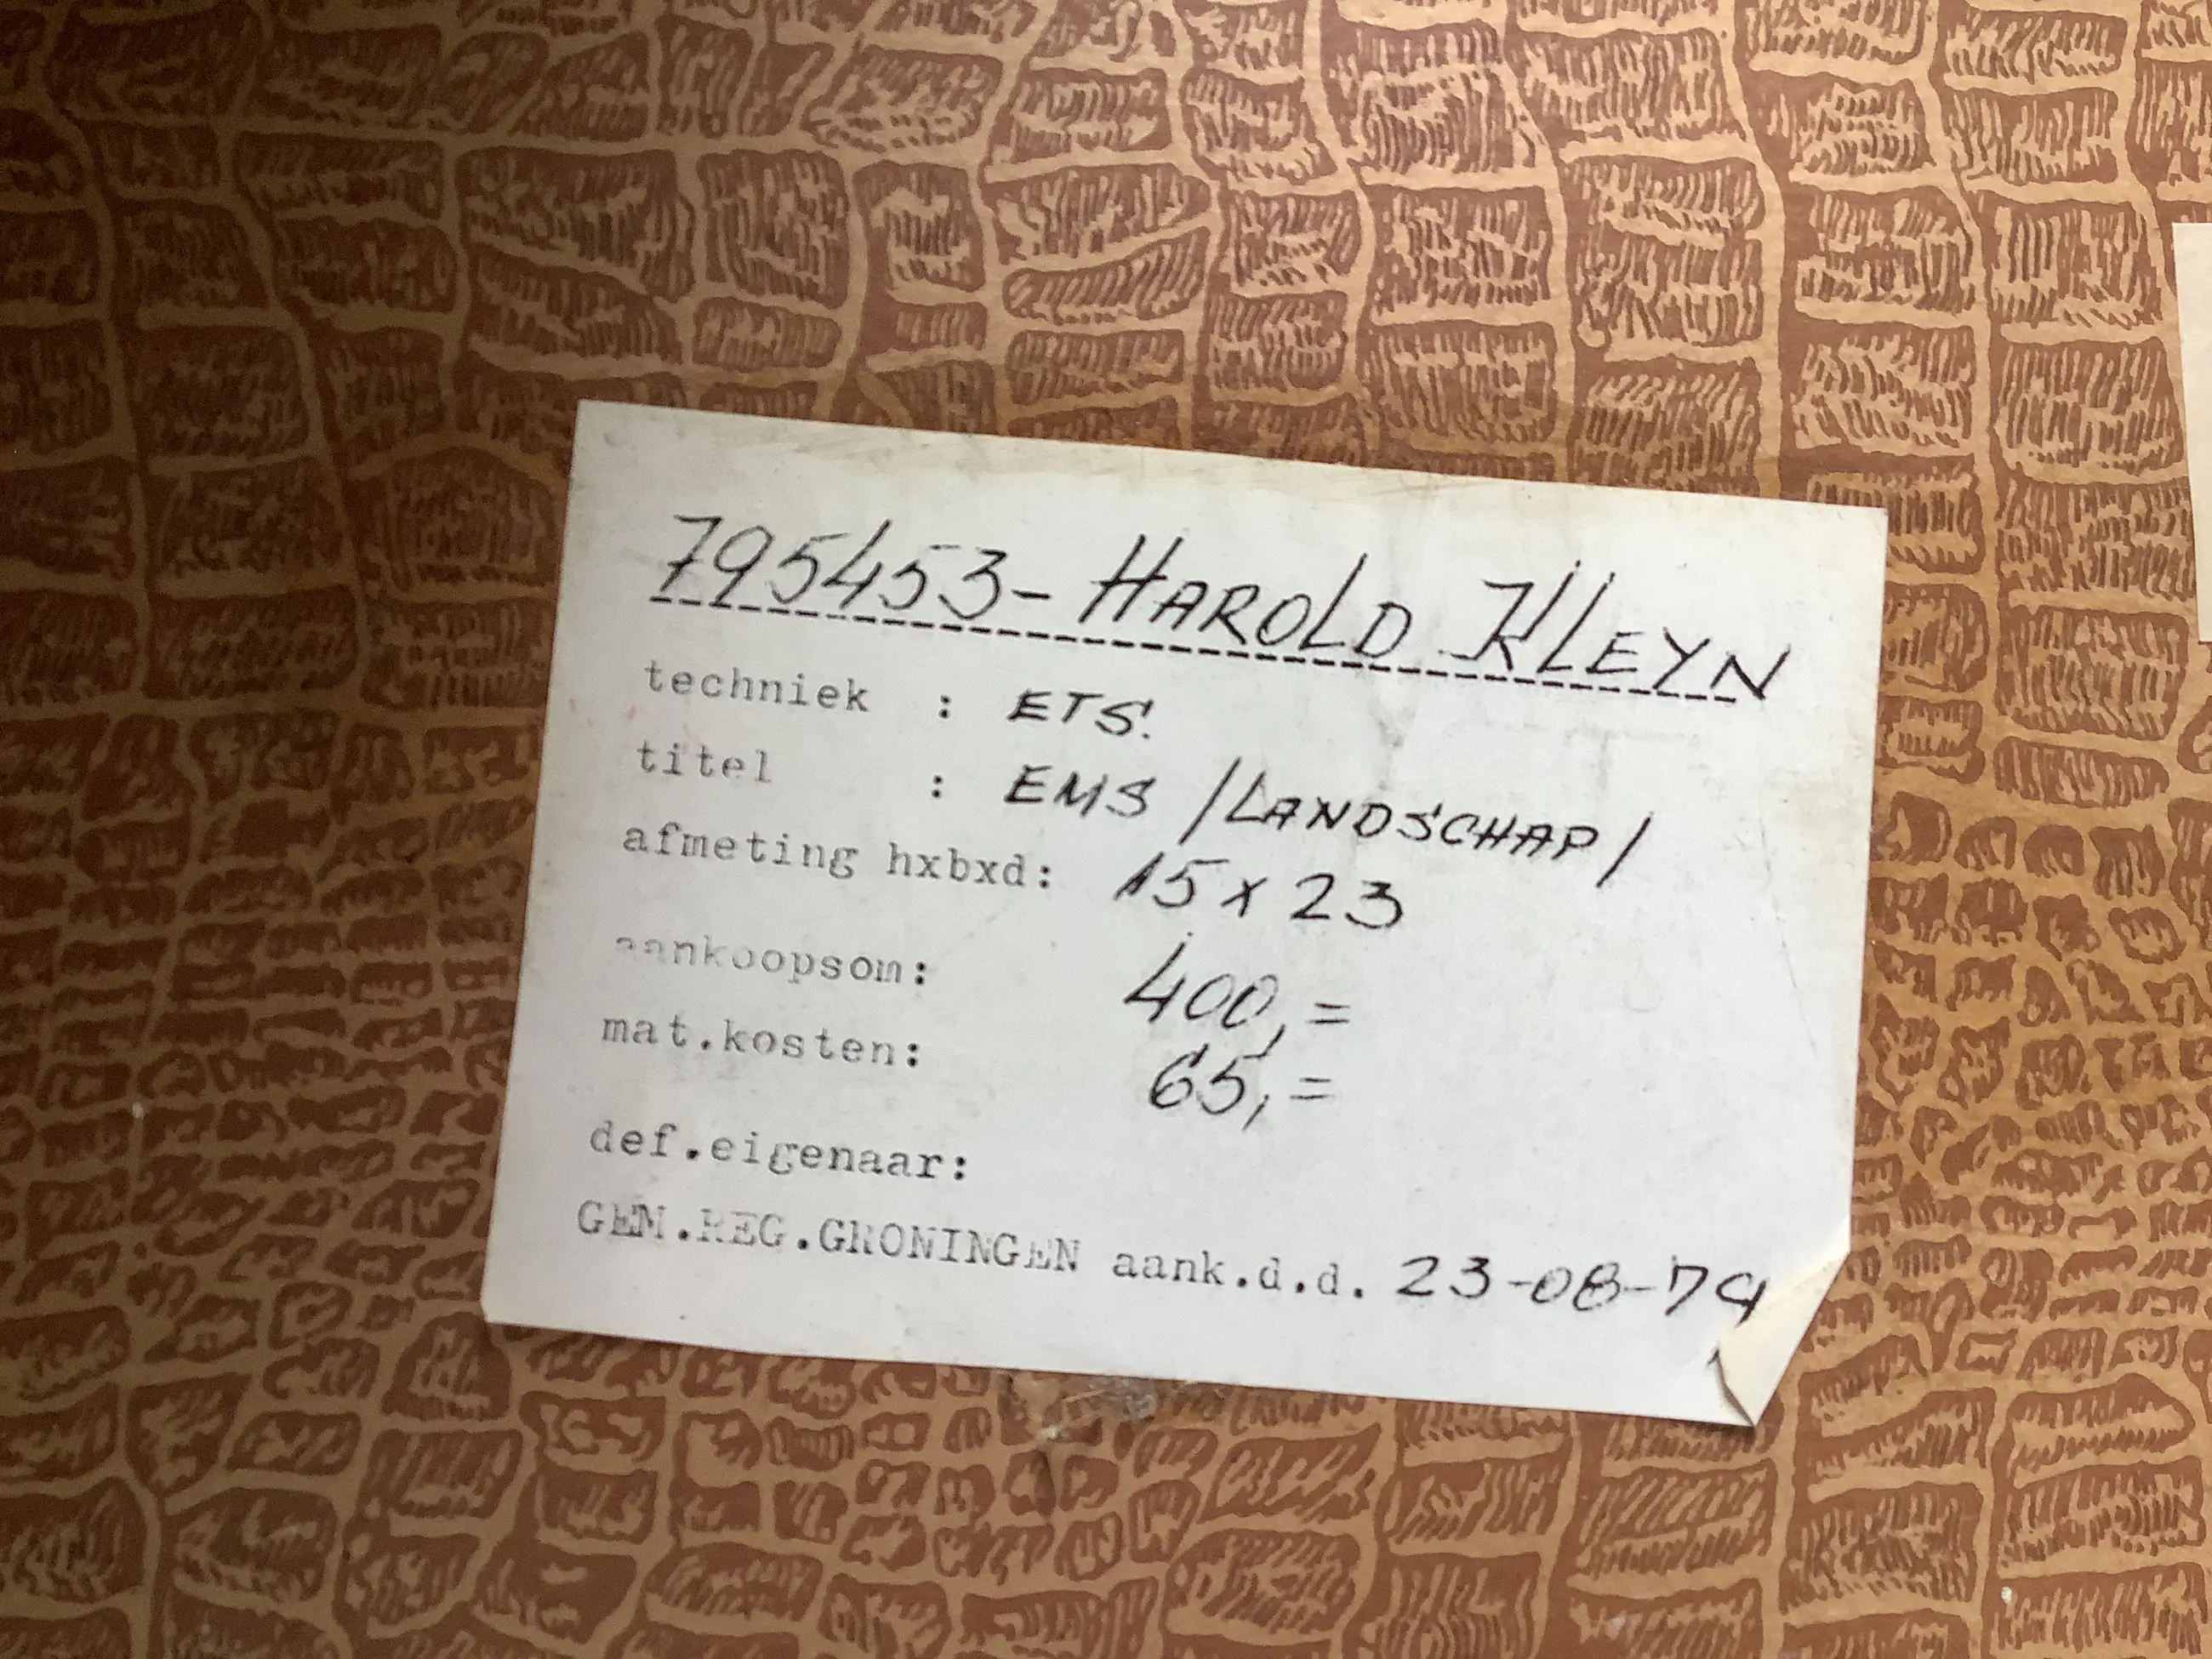 795453- HAROLD KLEYN
techniek : ETS.
titel : EMS /LANDSCHAP/
afmeting hxbxd: 15 x 23
aankoopsom: 400,=
mat.kosten: 65,=
def.eigenaar:
GEM.REG.GRONINGEN aank.d.d. 23-08-79